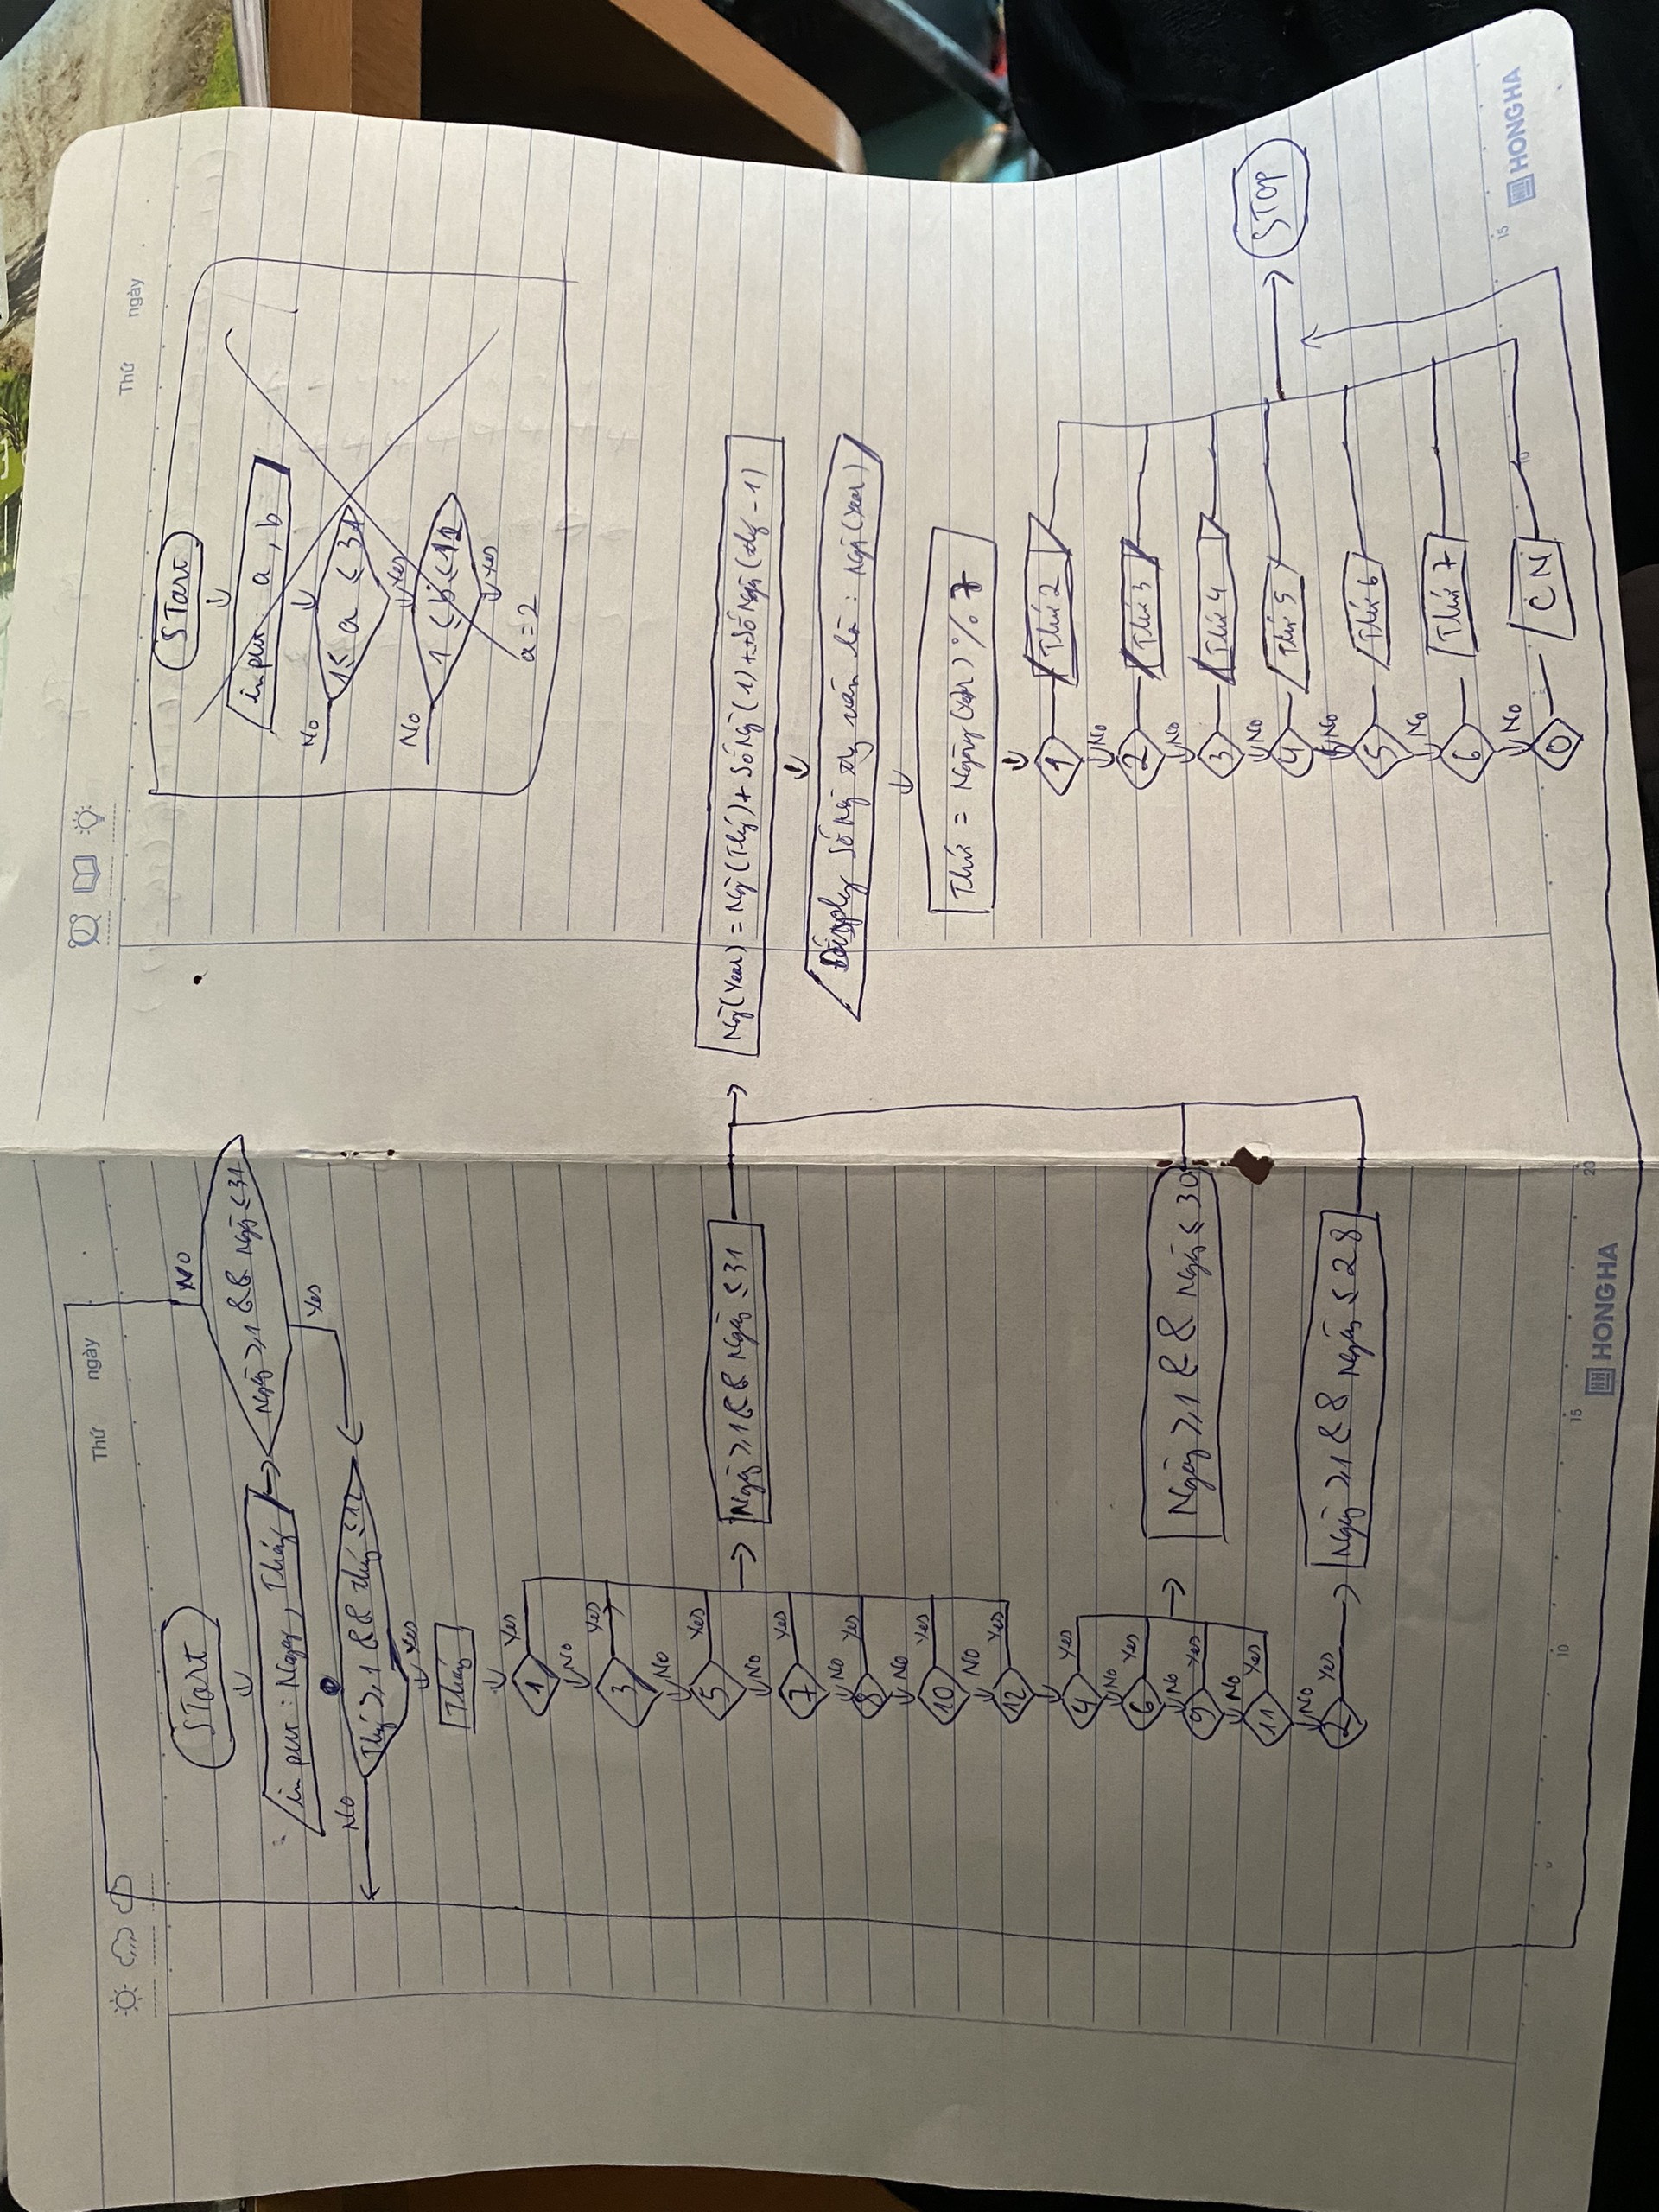 Thứ ngày
Start
input : Ngày, Tháng
Ngày ≥ 1 && Ngày ≤ 31
No
Yes
Thg ≥ 1 && thg ≤ 12
No
Yes
Tháng
1 Yes
No
3 Yes
No
5 Yes
No
7 Yes
No
8 Yes
No
10 Yes
No
12 Yes
No
Ngày ≥ 1 && Ngày ≤ 31
4 Yes
No
6 Yes
No
9 Yes
No
11 Yes
No
Ngày ≥ 1 && Ngày ≤ 30
2 Yes
Ngày ≥ 1 && Ngày ≤ 28
5
10
15
20
HONG HA
Thứ ngày
Start
input : a, b
1 ≤ a ≤ 31
No
Yes
1 ≤ b ≤ 12
No
Yes
a = 2
Ng(Year) = Ng(Thg) + Số Ng(1) + + Số Ng(thg - 1)
Display Số Ng năm là : Ng(Year)
Thứ = Ngày(Year) % 7
1 Thứ 2
No
2 Thứ 3
No
3 Thứ 4
No
4 Thứ 5
No
5 Thứ 6
No
6 Thứ 7
No
0 CN
STop
10
15
HONG HA